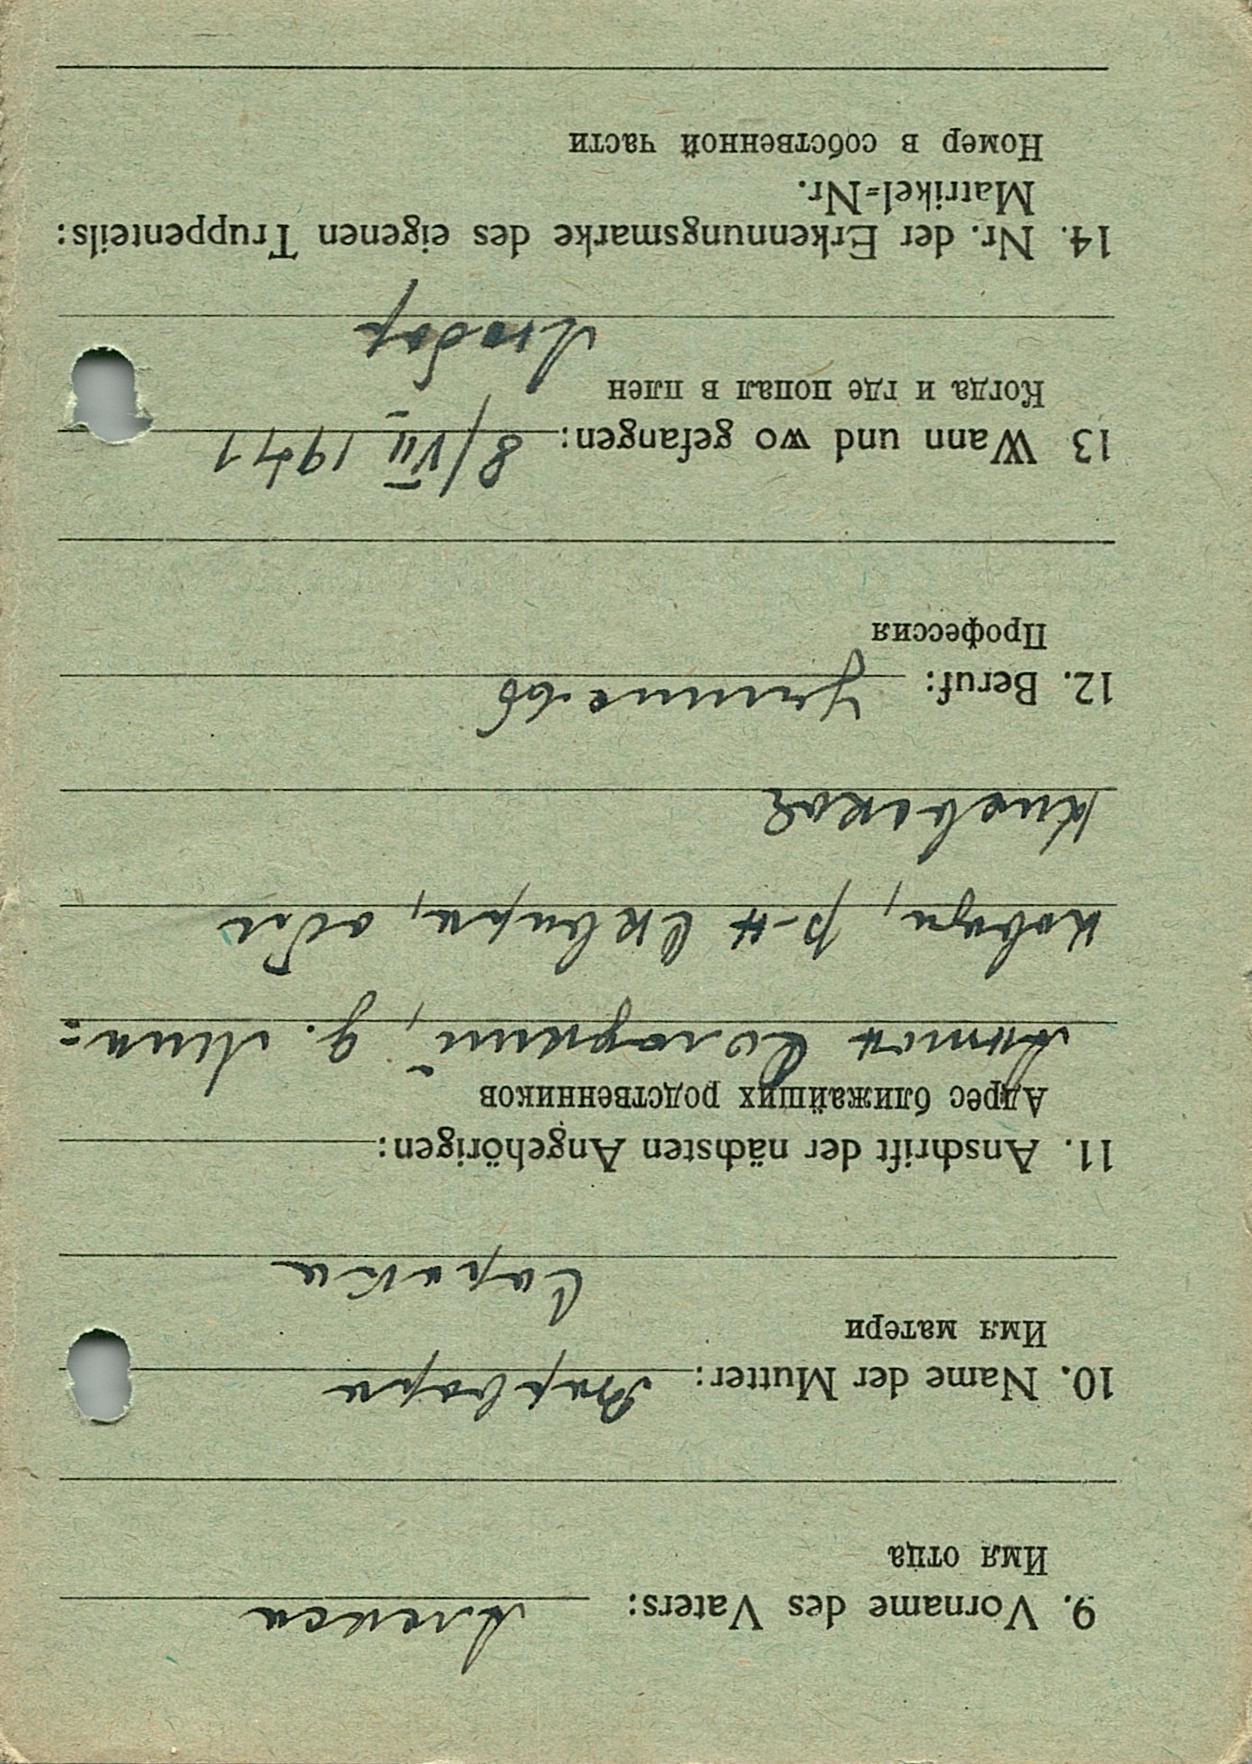 9. Vorname des Vaters: Алекса
Имя отца
10. Name der Mutter: Варвара
Имя матери
Сорока
11. Anschrift der nächsten Angehörigen:
Адрес ближайших родственников
Антон д. Лин=
р-н Сквира, обл
Киевская
12. Beruf:
Профессия
13 Wann und wo gefangen: 8/VII 1941
Когда и где попал в плен
Любар
14. Nr. der Erkennungsmarke des eigenen Truppenteils:
Matrikel=Nr.
Номер в собственной части